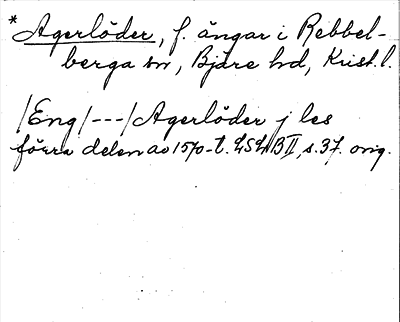 *Agerlöder, f. ängar i Rebbel-
berga sn, Bjäre hd, Krist. l.
/Eng/---/Agerlöder j les
förra delen av 1570-t. LSLB II, s. 37. orig.